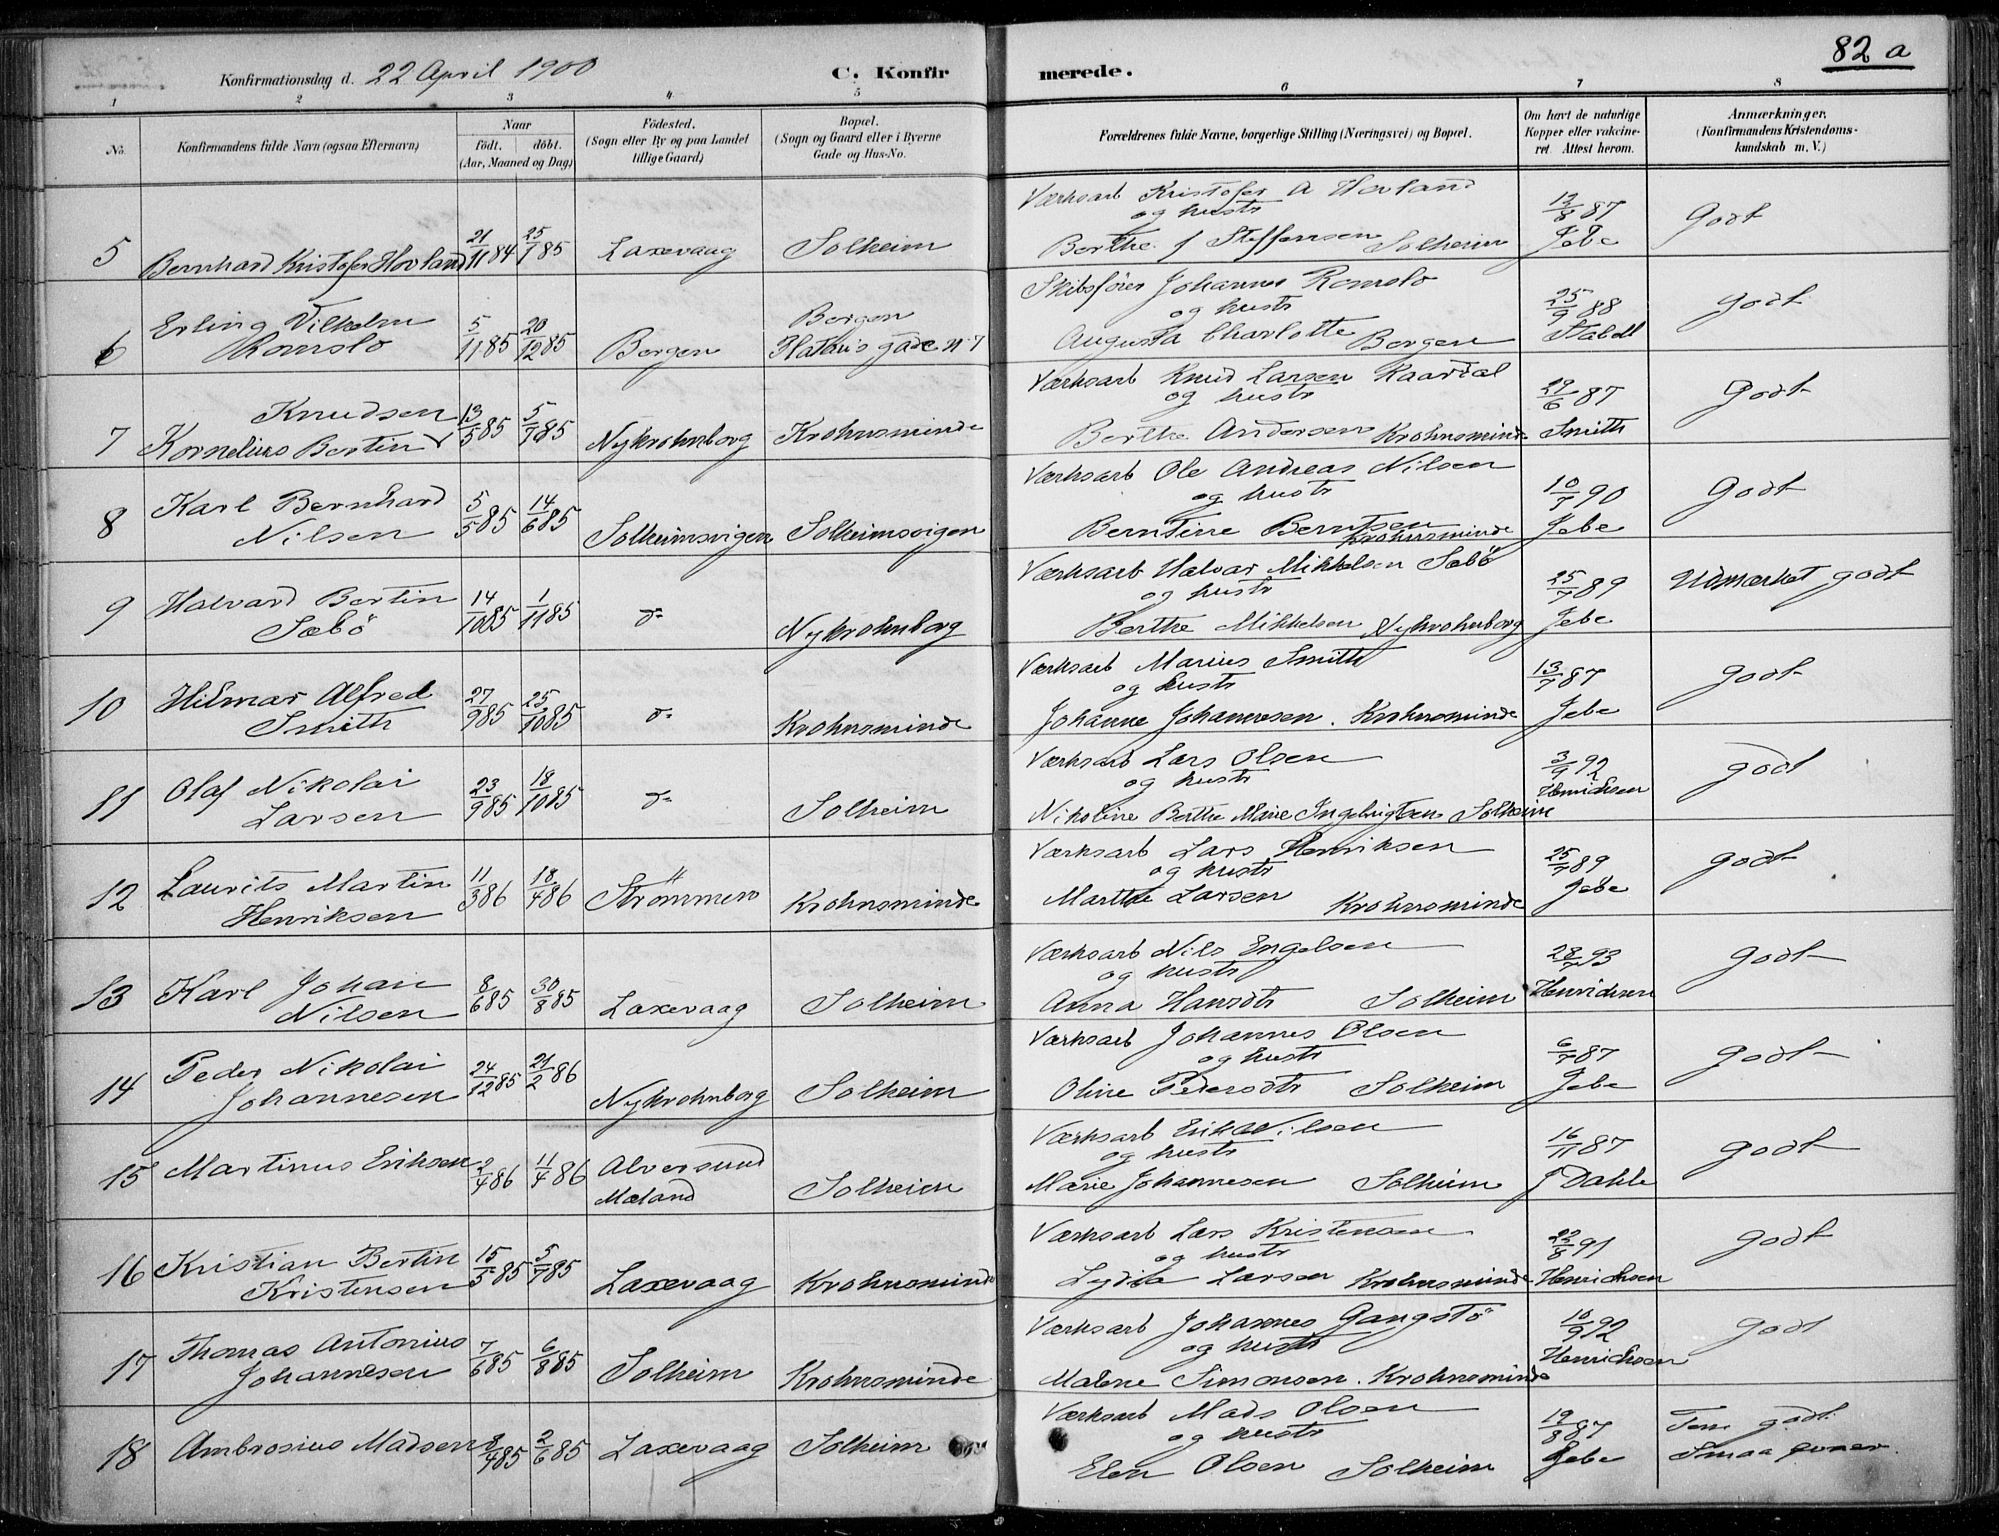 82 a
Konfirmationsdag d. 22 April 1900
C. Konfirmerede.
1 2 3 4 5 6 7 8
No.
Konfirmandens fulde Navn (ogsaa Efternavn)
Naar
födt. döbt.
(Aar, Maaned og Dag)
Födested.
(Sogn eller By og paa Landet
tillige Gaard)
Bopæl.
(Sogn og Gaard eller i Byerne
Gade og Hus-No.
Forældrenes fulde Navne, borgerlige Stilling (Næringsvei) og Bopæl.
Om havt de naturlige
Kopper eller vakcine-
ret. Attest herom.
Anmærkninger.
(Konfirmandens Kristendoms-
kundskab m. V.)
5 Bernhard Kristofer Hovland 21/11 84 25/1 85 Laxevaag Solheim
Værksarb Kristofer A Hovland
og hustr
Berthe f Steffensen Solheim
13/8 87
Jebe
Godt
6 Erling Vilhelm
Romslo
5/11 85 20/12 85 Bergen
Bergen
gade No 7
Skibsfører Johannes Romslo
og hustr
Augusta Charlotte Bergen
25/9 88
Stabell
Godt
7 Knudsen
Kornelius Bertin
13/5 85 5/7 85 Nykrohnborg Krohnsminde
Værksarb Knud Larsen Kaardal
og hustr
Berthe Andersen Krohnsminde
29/6 87
Smith
Godt
8 Karl Bernhard
Nilsen
5/5 85 14/6 85 Solheimsvigen Solheimsvigen
Værksarb Ole Andreas Nilsen
og hustr
Berntine Berntsen
Krohnsminde
10/7 90
Jebe
Godt
9 Halvard Bertin
Sæbö
14/10 85 1/11 85 do Nykrohnborg
Værksarb Halvar Mikkelsen Sæbö
og hustr
Berthe Mikkelsen Nykrohnborg
25/7 89
Jebe
Udmærket godt
10 Hilmar Alfred
Smith
27/9 85 25/10 85 do Krohnsminde
Værksarb Marius Smith
og hustr
Johanne Johannesen. Krohnsminde
13/7 87
Jebe
Godt
11 Olaf Nikolai
Larsen
23/9 85 18/10 85 do Solheim
Værksarb Lars Olsen
og hustr
Nikoline Berthe Marie Ingebrigtsen Solheim
3/9 92
Henrichsen
godt
12 Laurits Martin
Henriksen
11/3 86 18/4 86 Strömmen Krohnsminde
Værksarb Lars Henriksen
og hustr
Marthe Larsen Krohnsminde
25/7 89
Jebe
godt
13 Karl Johan
Nilsen
8/6 85 30/8 85 Laxevaag Solheim
Værksarb Nils Engelsen
og hustr
Anna Hansdtr Solheim
28/7 93
Henrichsen
Godt
14 Peder Nikolai
Johannesen
24/12 85 21/2 86 Nykrohnborg Solheim
Værksarb Johannes Olsen
og hustr
Oline Pedersdtr Solheim
6/7 87
Jebe
Godt
15 Martinus Eriksen
2/4 86 11/4 86 Alversund
Mæland
Solheim
Værksarb Erik Nilsen
og hustr
Marie Johannesen Solheim
16/11 87
J Dahle
godt
16 Kristian Bertin
Kristensen
15/5 85 5/7 85 Laxevaag Krohnsminde
Værksarb Lars Kristensen
og hustr
Lydia Larsen Krohnsminde
22/8 91
Henrichsen
godt
17 Thomas Antonius
Johannesen
7/6 85 6/8 85 Solheim Krohnsminde
Værksarb Johannes Gangstö
og hustr
Malene Simonsen. Krohnsminde
10/9 92
Henrichsen
godt
18 Ambrosius Madsen 8/4 85 2/6 85 Laxevaag Solheim
Værksarb Mads Olsen
og hustr
Elen Olsen Solheim
19/8 87
Jebe
Tem godt
Smaa evner.